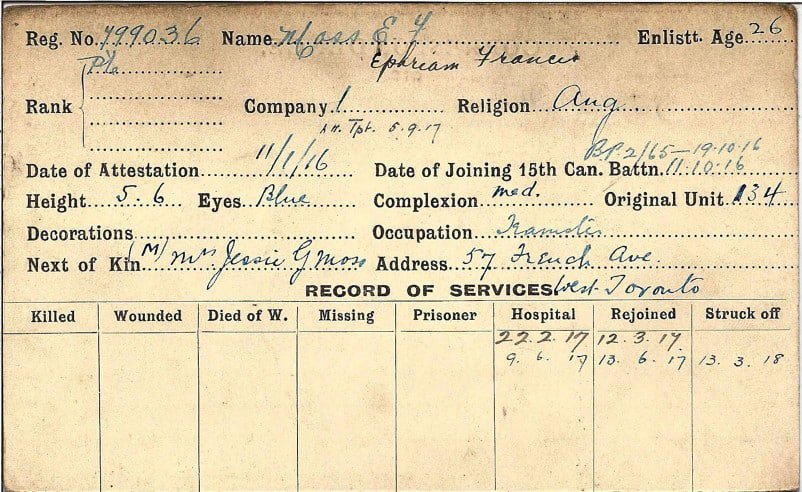 Reg. No. 799036 Name Moss E. F Enlistt. Age 26
Ephriam Francis
Pte
Rank Company 1 Religion Ang
Att. Tpt. 5.9.17
B.P. 2/65—19.10.16
Date of Attestation 11/1/16 Date of Joining 15th Can. Battn. 11.10.16
Height 5.6 Eyes Blue Complexion med. Original Unit 134
Decorations Occupation Teamster
Next of Kin (M) Mrs Jessie G Moss Address 57 French Ave.
RECORD OF SERVICES. West Toronto
Killed Wounded Died of W. Missing Prisoner Hospital Rejoined Struck off
22.2.17 12.3.17.
9.6.17 13.6.17 13.3.18